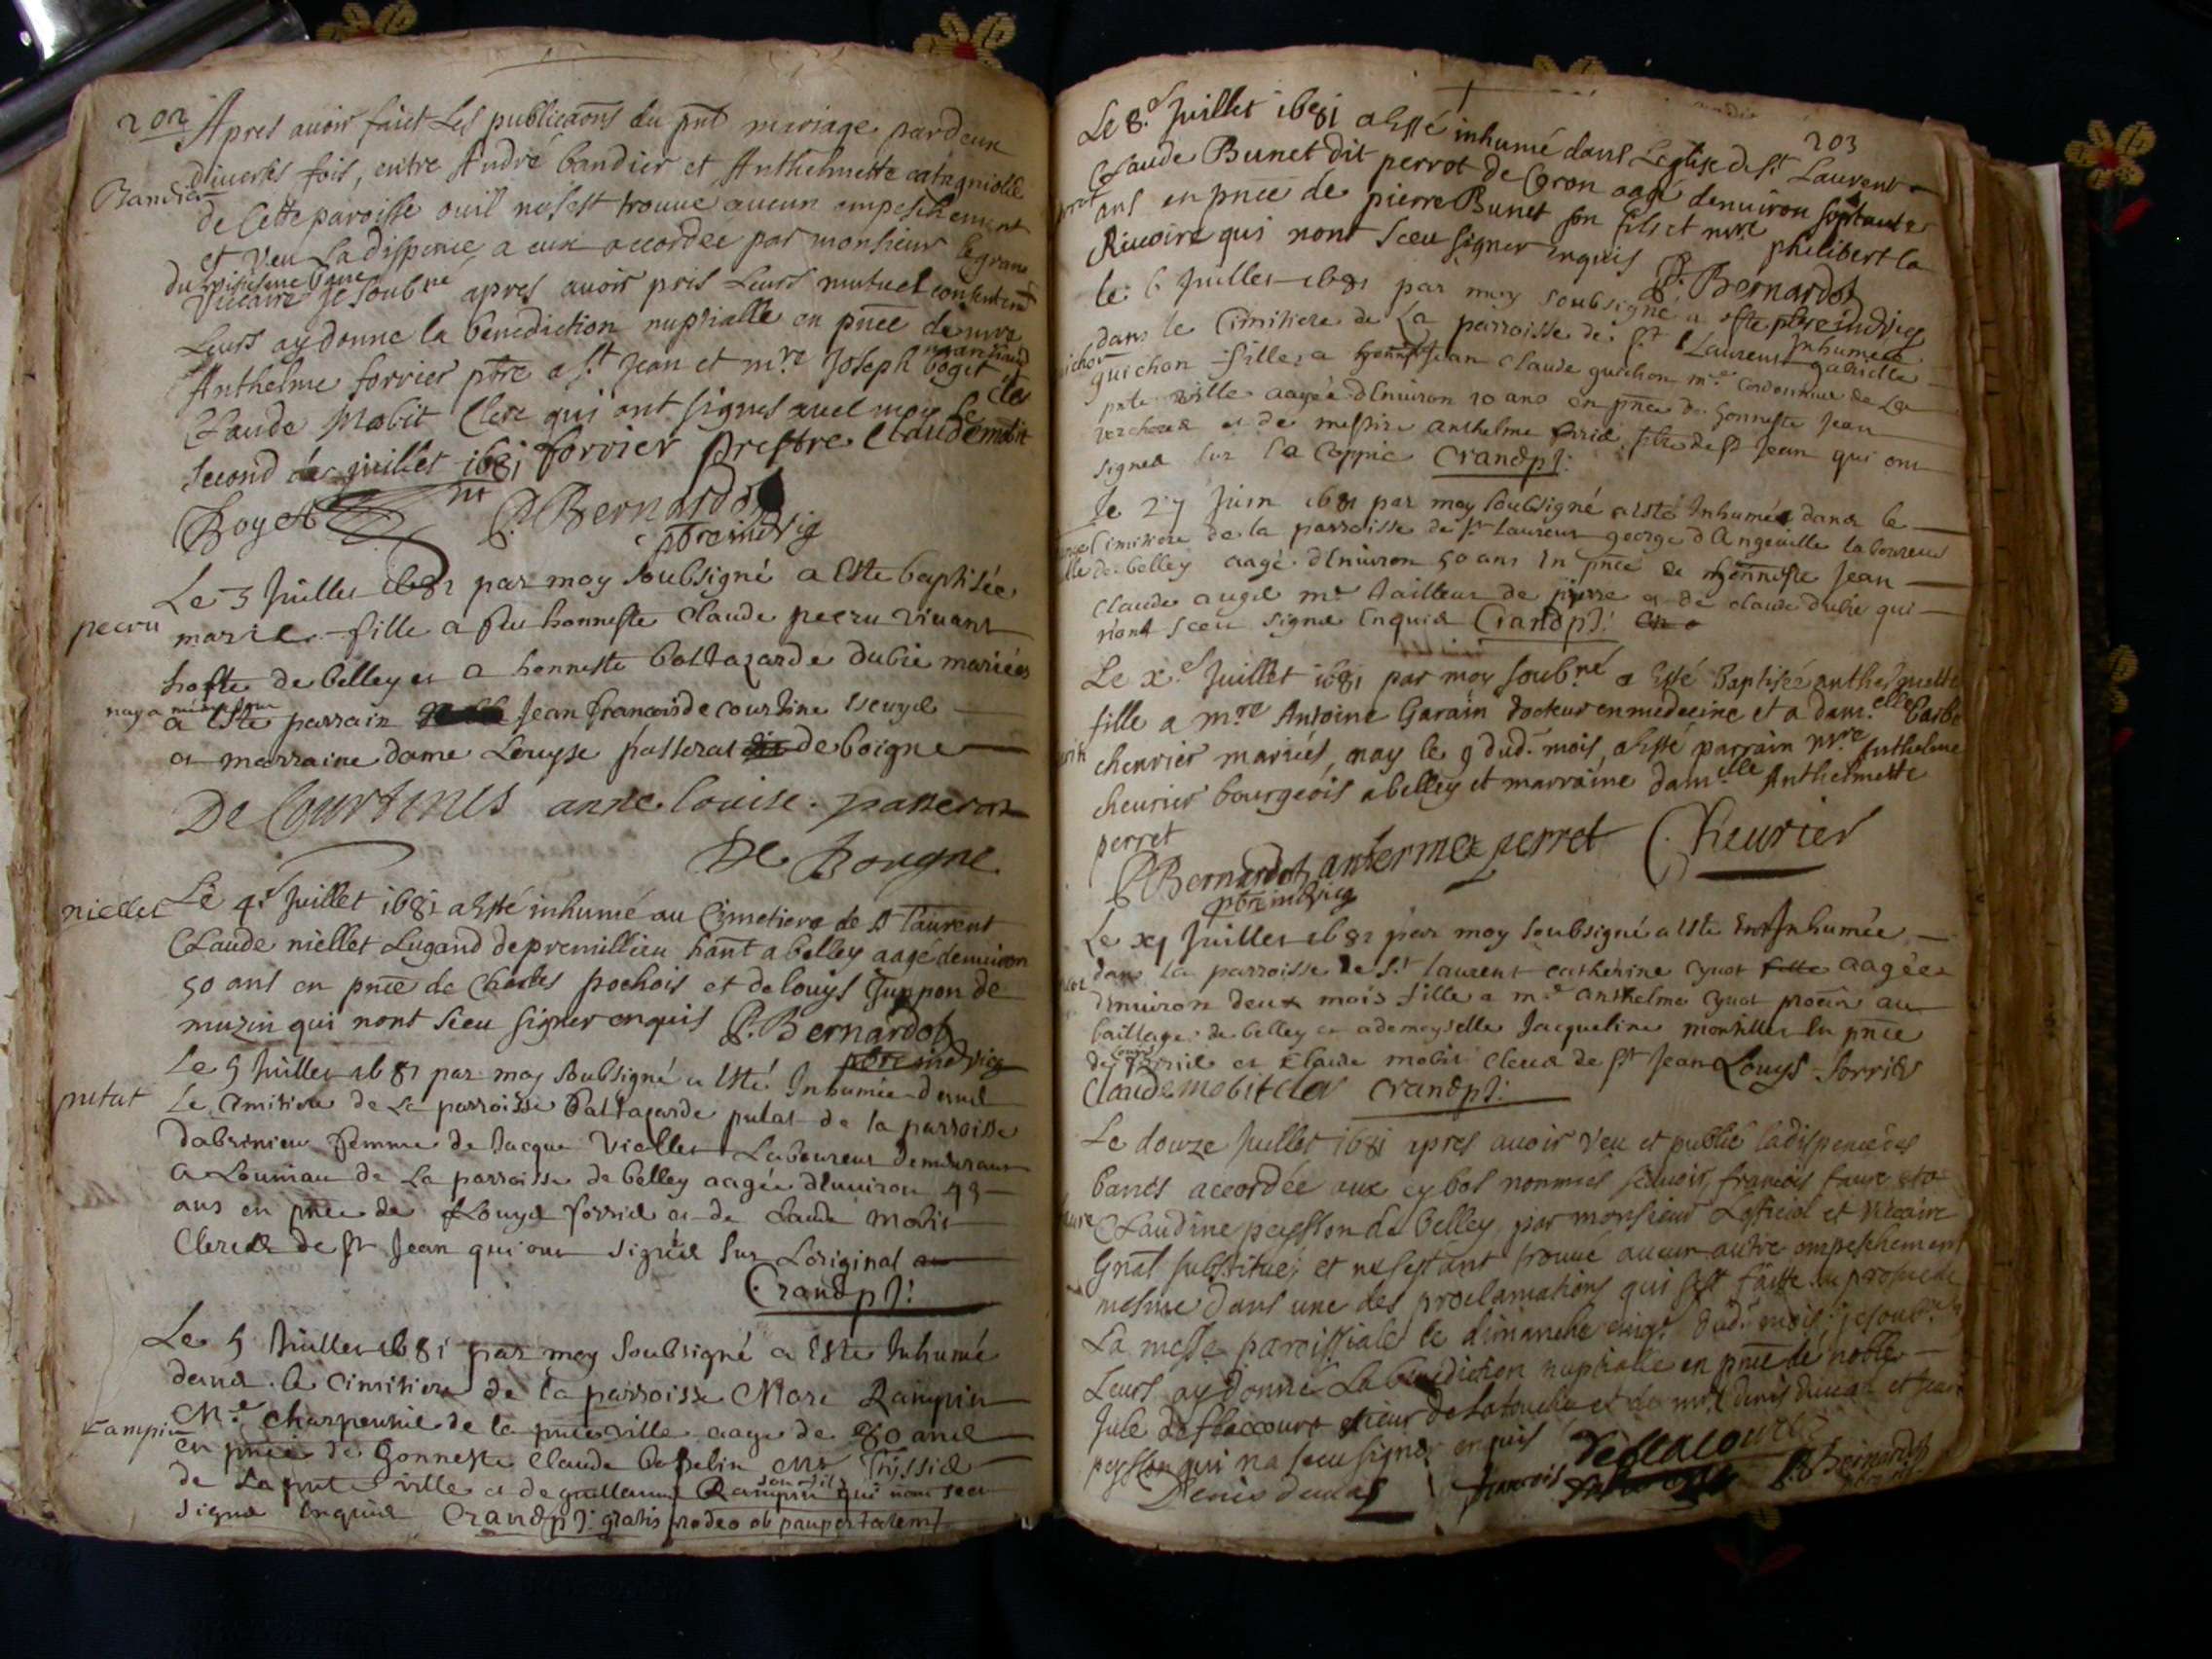 202
Apres avoir faict Les publicaõns du pnt mariage par deux
diverses fois, entre André bandier et Anthelmette catagniolle
Bandier
de Cette paroisse ou il ne sest trouve aucun empeschement
et veu La dispence a eux accordée par monsieur le grand
Viccaire je soubné apres avoir pris Leurs mutuel consentemt
Leurs ay donne la benediction nuptialle en pnce de mre
Anthelme forrier ptre a St Jean et mre Joseph boget marchand
Claude Mobit Clerc qui ont signes avec moy Le
second de juillet 1681 forrier prestre Claude mobit cler
Boget P. Bernardot
ptre indvig
Le 3 Juillet 1681 par moy soubsigné a Este baptisée
pecru
marie fille a feu honneste Claude pecru vivant
hoste de belley et a honneste baltazarde dubie mariées
a Este parrain Jean francois de courtine Escuyé
et marraine dame Louyse passerat de boigne
De Courtines anne louise passerat
De Bougne
niellet
Le 4e Juillet 1681 a Esté inhumé au Cimetiere de St laurent
Claude niellet Lugand de premillieu hant a belley aagé denuiron
50 ans en pnce de Charles pochois et de louys Juppon de
muzin qui nont sceu signer enquis P. Bernardot
ptre indvig
Le 5 Juillet 1681 par moy soubsigné a Esté Inhumée dans
putat
Le Cimitiere de La parroisse baltazarde putat de la parroisse
dabrinieu femme de Jacque viellet Laboureur demeurant
a Loumau de La parroisse de belley aagée dEnuiron 43
ans en pnce de Louys forrie et de Claude Mobit
Clercs de St Jean qui ont signés sur Loriginal
Crandp:
Le 5 Juillet 1681 par moy soubsigné a Este Inhumé
dans le Cimitiere de la parroisse Marc Rampin
Rampin
Me Charpentié de la pnte ville aagé de 80 ans
en pnce de honneste Claude Me
de La pnte ville et de guillaume Rampin son fils qui nont sceu
signe Enquis Crandp: gratis pro deo ob paupertatem
203
Le 8.e Juillet 1681 a Esté inhumé dans Leglise de St Laurent
Claude Bunet dit perrot de Coron aagé denuiron septante
ans en pnce de pierre Bunet son fils et mre philibert la
Riuoire qui nont sceu signer enquis P. Bernardot
ptre indvig
le 6 Juillet 1681 par moy soubsigné a este Inhumée
dans le Cimitiere de La parroisse de St Laurent gabrielle
guichon fille a Jean Claude guichon me Cordonnier de La
pnte ville aagée dEnuiron 10 ans en pnce de honneste Jean
et de messire anthelme forrié ptre de St Jean qui ont
signes sur la Coppie Crandp:
le 27 Juin 1681 par moy soubsigné a Esté Inhumé dans le
Cimitiere de la parroisse de St Laurent george dAngeuille laboureur
de belley aagé dEnuiron 50 ans En pnce de honneste Jean
Claude augé me tailleur de pierre et de claude dubie qui
nont sceu signe Enquis Crandp:
Le x.e Juillet 1681 par moy soubné a Esté Baptisée anthelmette
fille a mre Antoine Garain docteur en medecine et a dam.elle barbe
cheurier mariés, nay le 9 dud. mois, a Esté parrain mre Anthelme
cheurier bourgeois a belley et marraine dam.elle Anthelmette
perret
P. Bernardot anterme perret Cheurier
ptre indvig
Le xj Juillet 1681 par moy soubsigné a Este Inhumée
dans la parroisse de St laurent catherine aagée
denuiron deux mois fille a me anthelme procur au
baillage de belley et a demoyselle Jacqueline En pnce
de louys forrié et Claude mobit clercs de St Jean Louys forrier
Claude mobit cler Crandp:
Le douze Juillet 1681 apres auoir veu et publié la dispence des
bancs accordée aux cy bas nommés scauoir, francois faure et a
Claudine peysson de belley par monsieur Lofficial et Viccaire
gnal substitué, et ne sestant trouué aucun autre empeschement
mesme dans une des proclamations qui sest faitte au prosne de
La messe paroissiale le dimanche dud. mois, je soubné
Leurs ay donné La benediction nuptialle en pnce de noble
Jule de flaccourt sieur de Latouche et de mre denis ducas et Jean
peysson qui na sceu signer enquis de flacourt
Denis ducas francois P. Bernardot